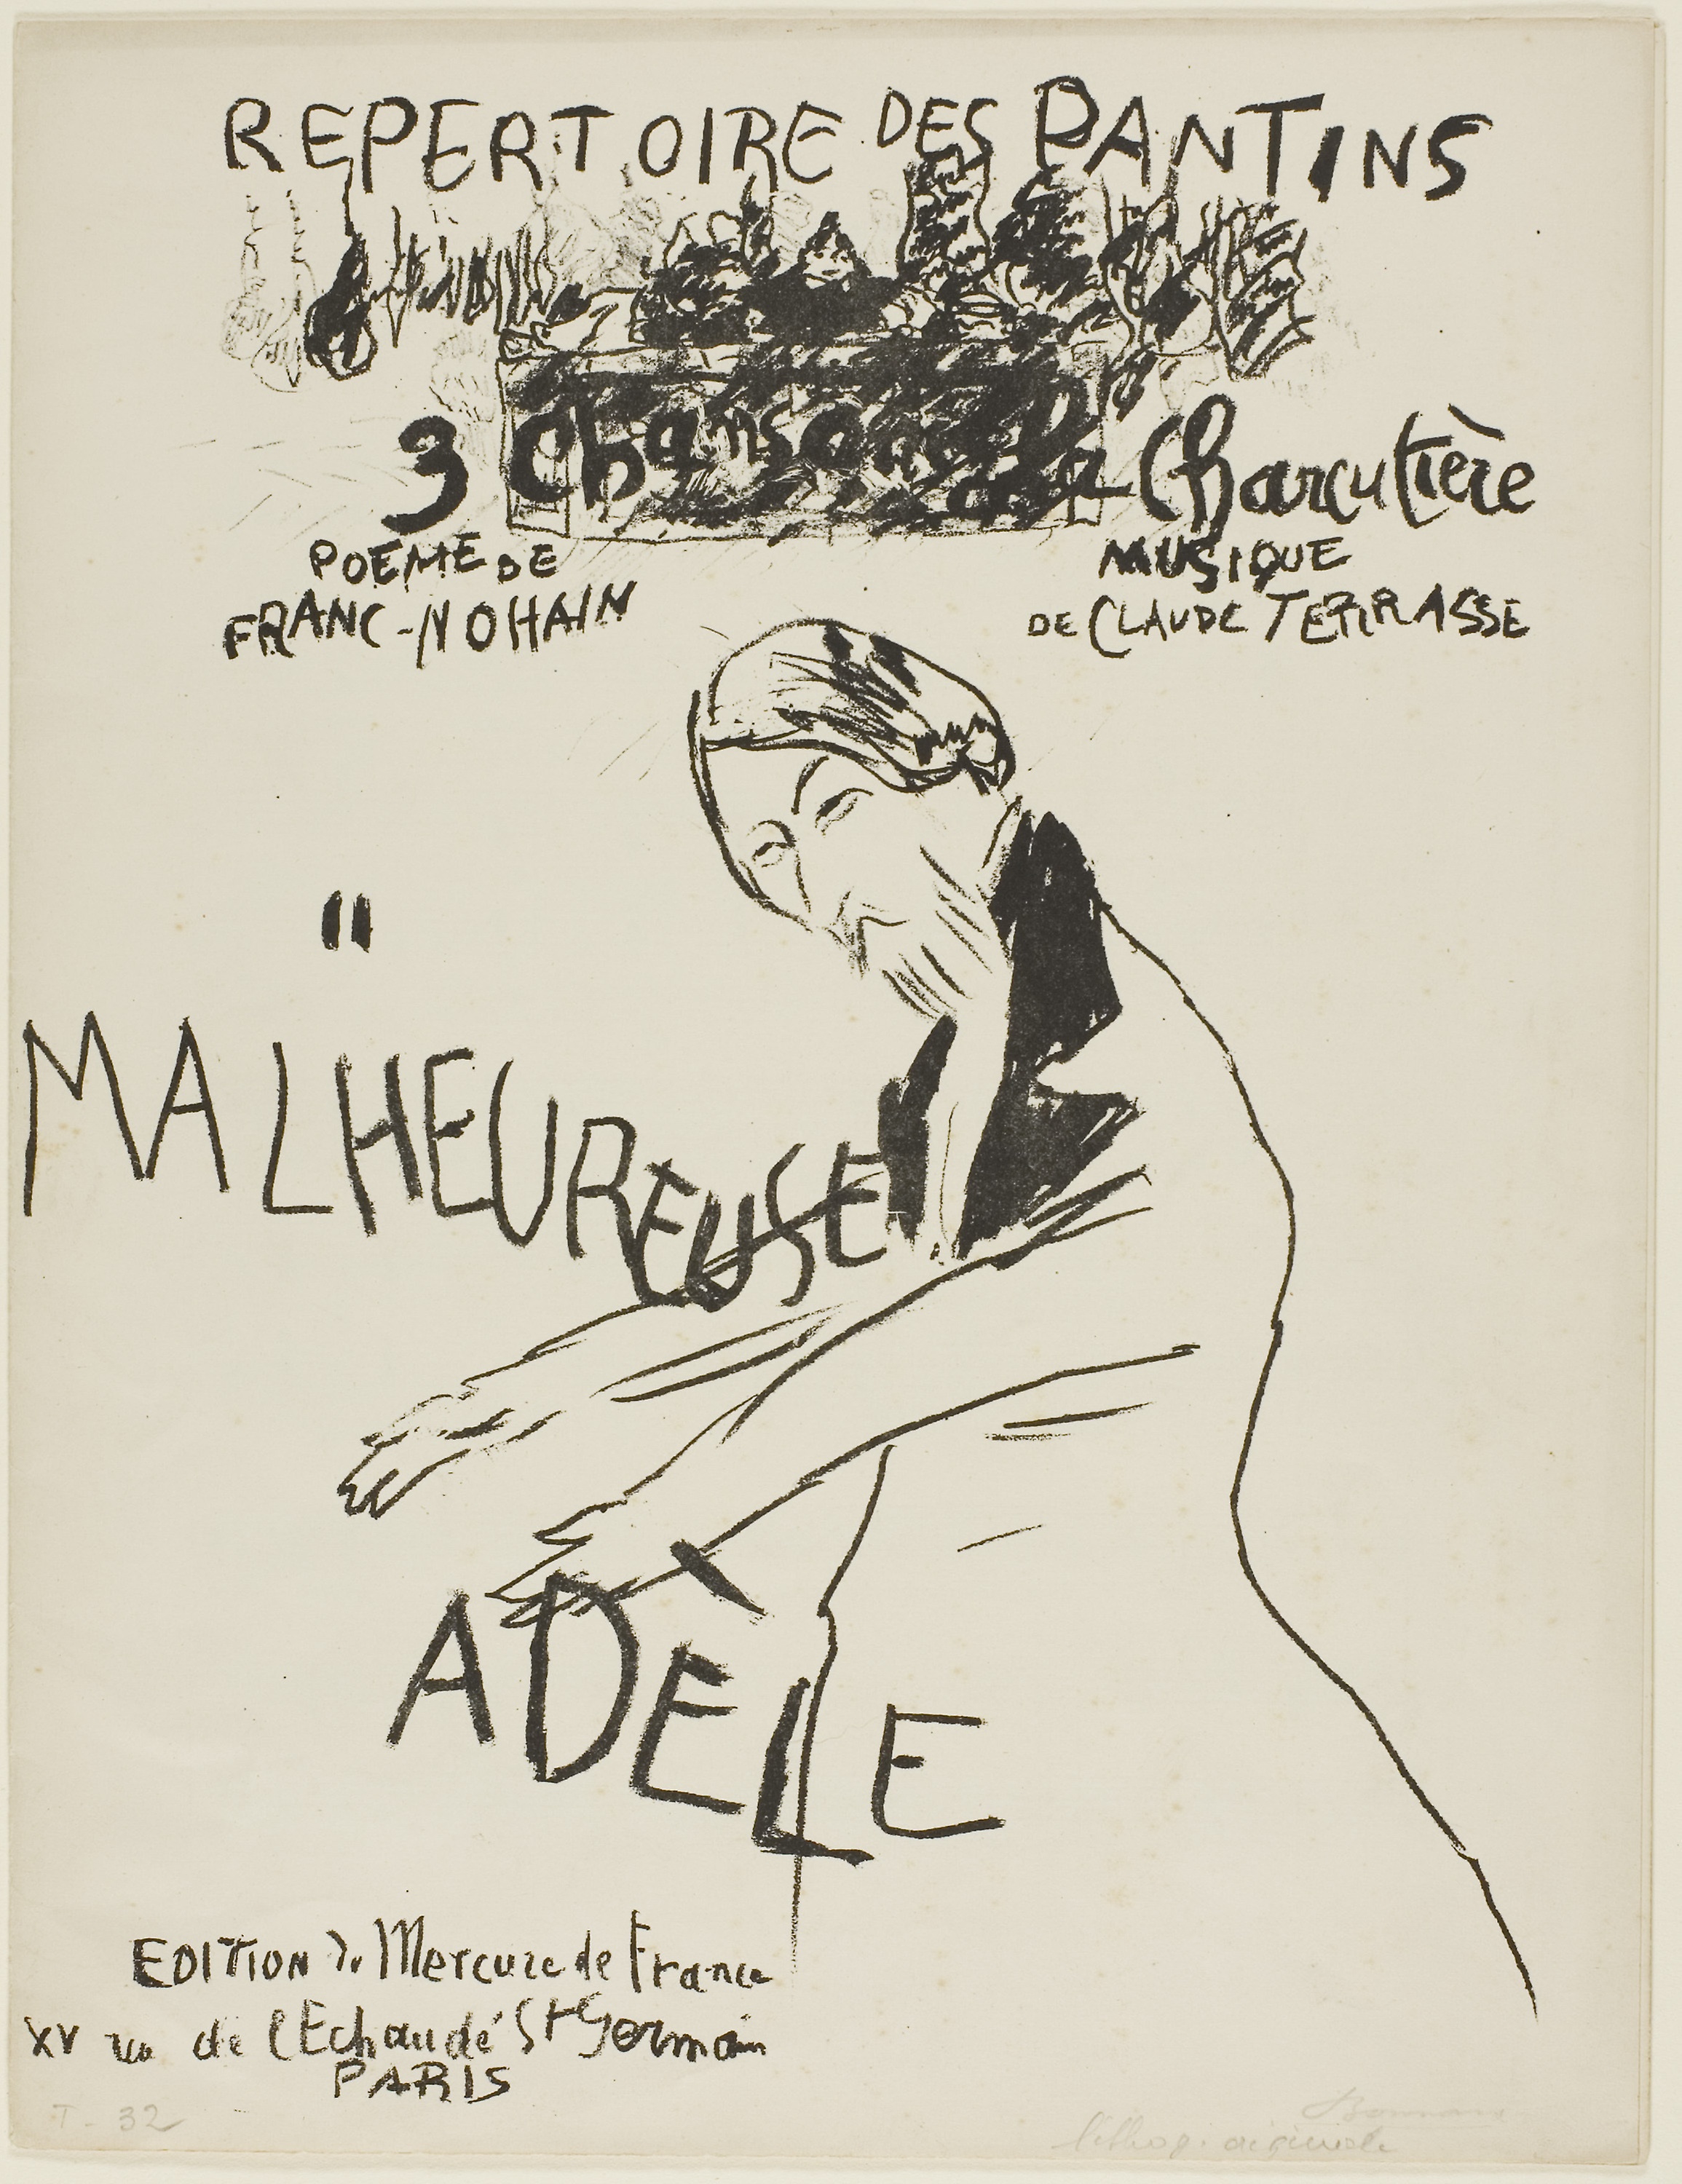 REPERTOIRE DES PANTINS
3 Chansons à la Charcutière
POEME DE
FRANC-NOHAIN
MUSIQUE
DE CLAUDE TERRASSE
"
MALHEUREUSE
ADÈLE
EDITION du Mercure de France
XV rue de l'Echaudé St Germain
PARIS
T-32
Bonnard
lithog. originale